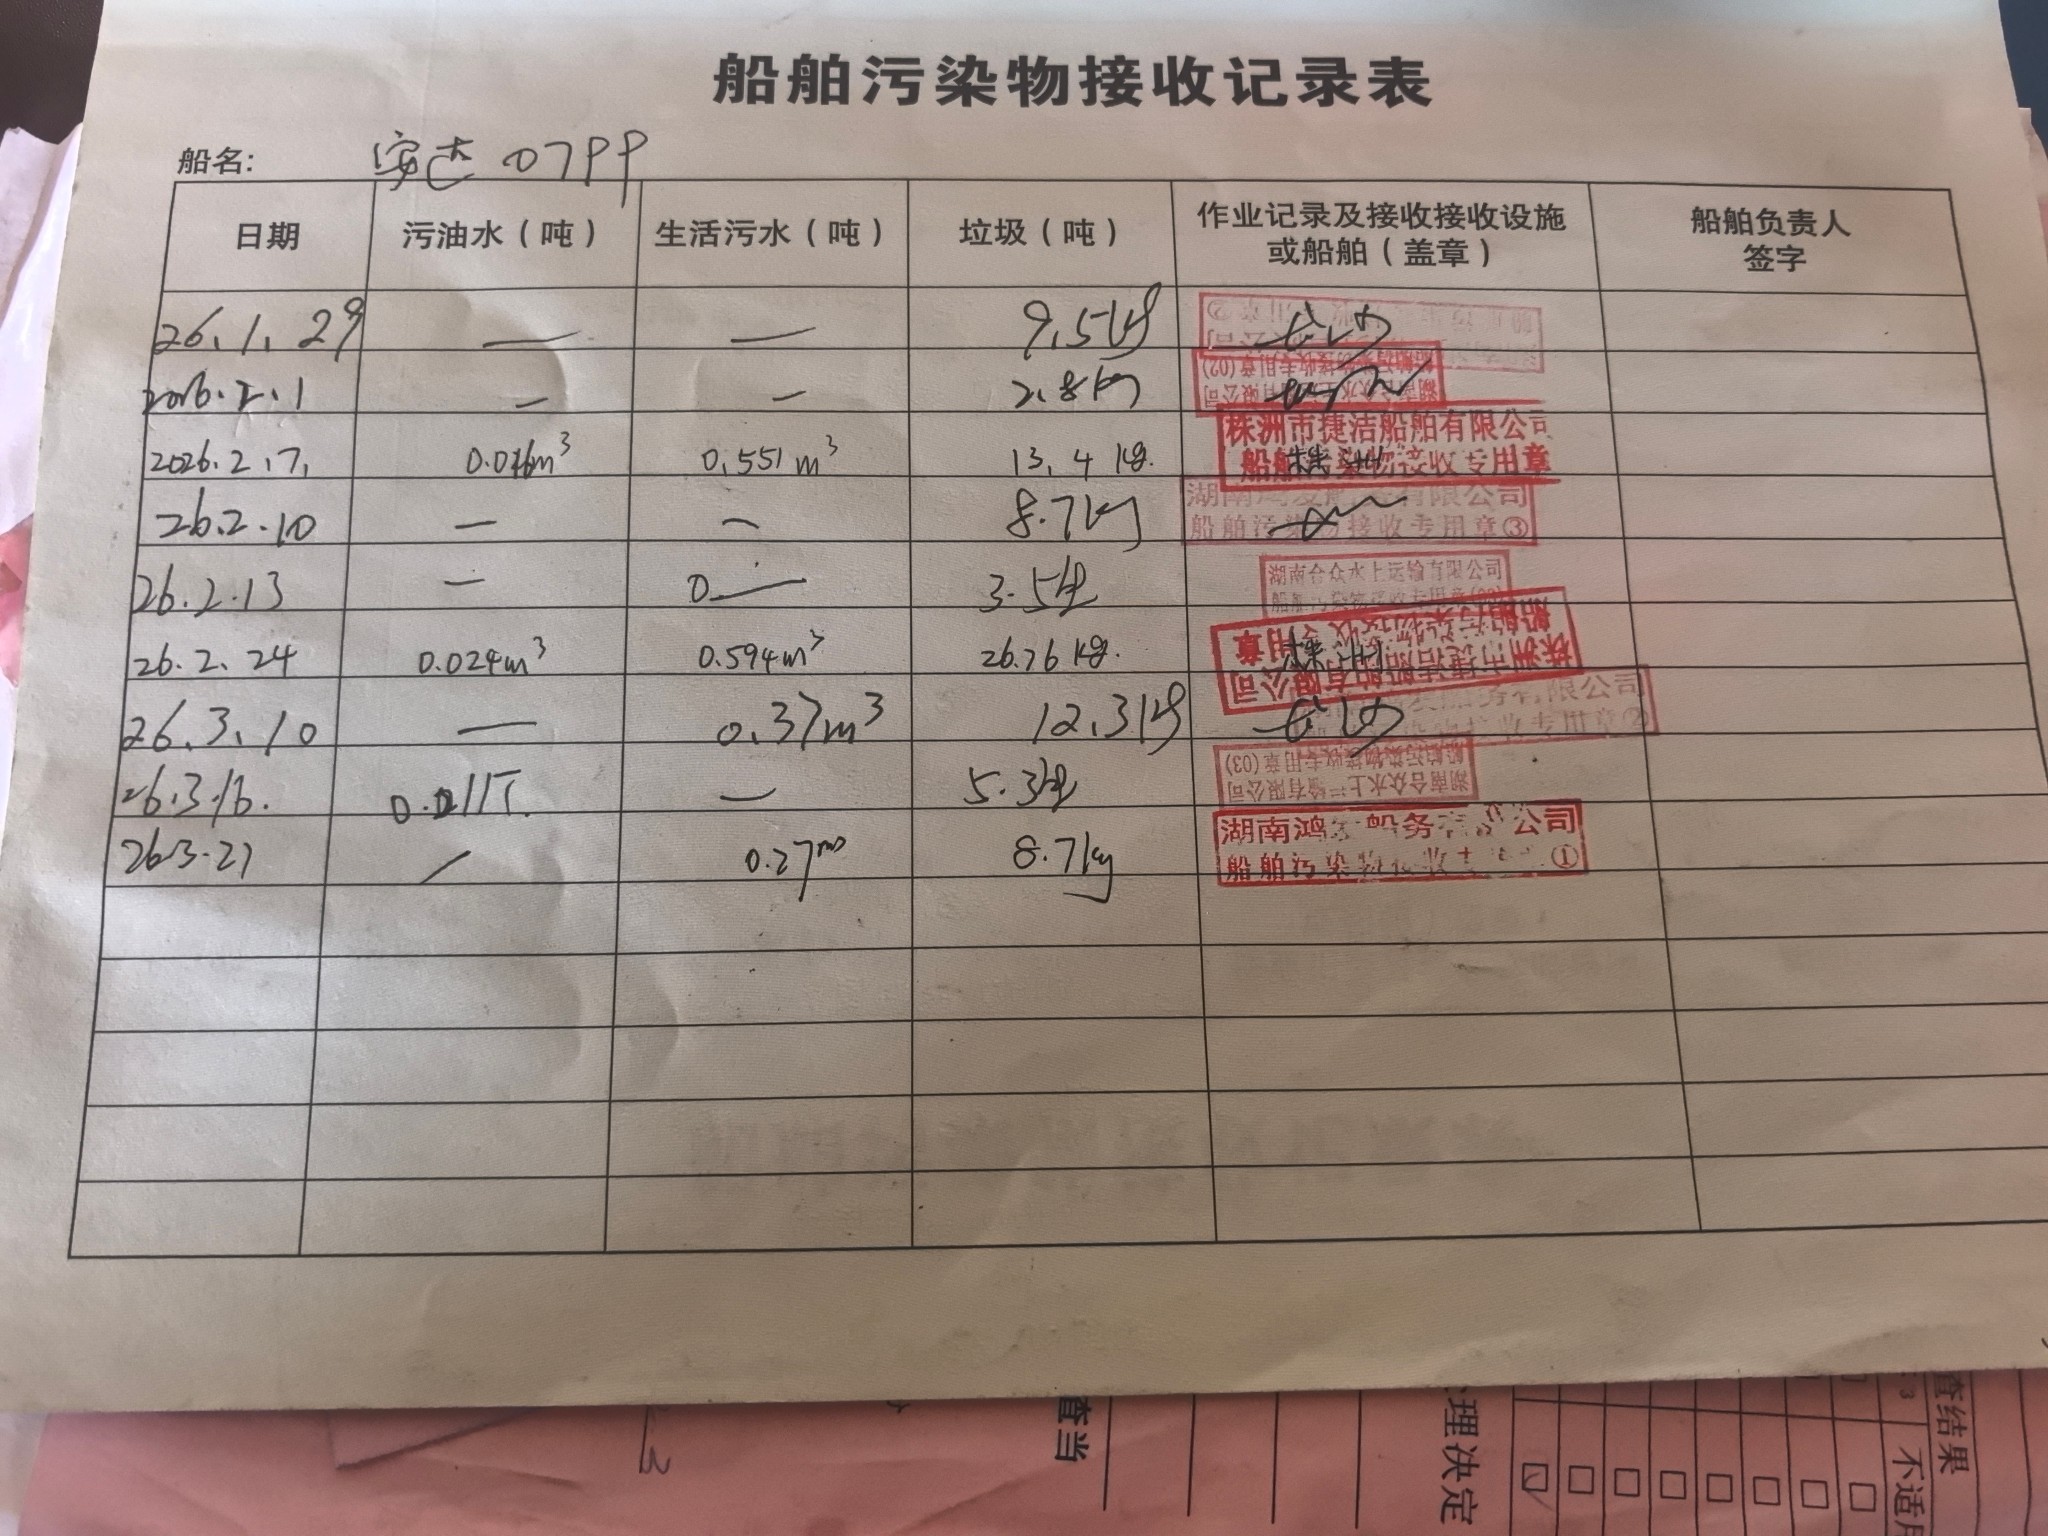 船舶污染物接收记录表
船名: 安达0799
日期 污油水（吨） 生活污水（吨） 垃圾（吨） 作业记录及接收接收设施或船舶（盖章） 船舶负责人签字
26.1.29 — — 9.5kg 长沙
2026.2.1 — — 2.8kg
湖南合众水上运输有限公司
船舶污染物接收专用章(02)
2026.2.7. 0.016m³ 0.551m³ 13.4kg. 株洲
株洲市捷洁船舶有限公司
船舶污染物接收专用章
26.2.10 — — 8.7kg
船舶污染物接收专用章③
26.2.13 — 0— 3.5kg
湖南合众水上运输有限公司
26.2.24 0.024m³ 0.594m³ 26.76kg. 株洲
株洲市捷洁船舶有限公司
船舶污染物接收专用章
26.3.10 — 0.37m³ 12.3kg 长沙
26.3.16. 0.011T. — 5.3kg
湖南合众水上运输有限公司
船舶污染物接收专用章(03)
26.3.27 — 0.27m³ 8.7kg
湖南鸿 船务 公司
船舶污染物接收专 ①
查当
理决定
查结果
不适用